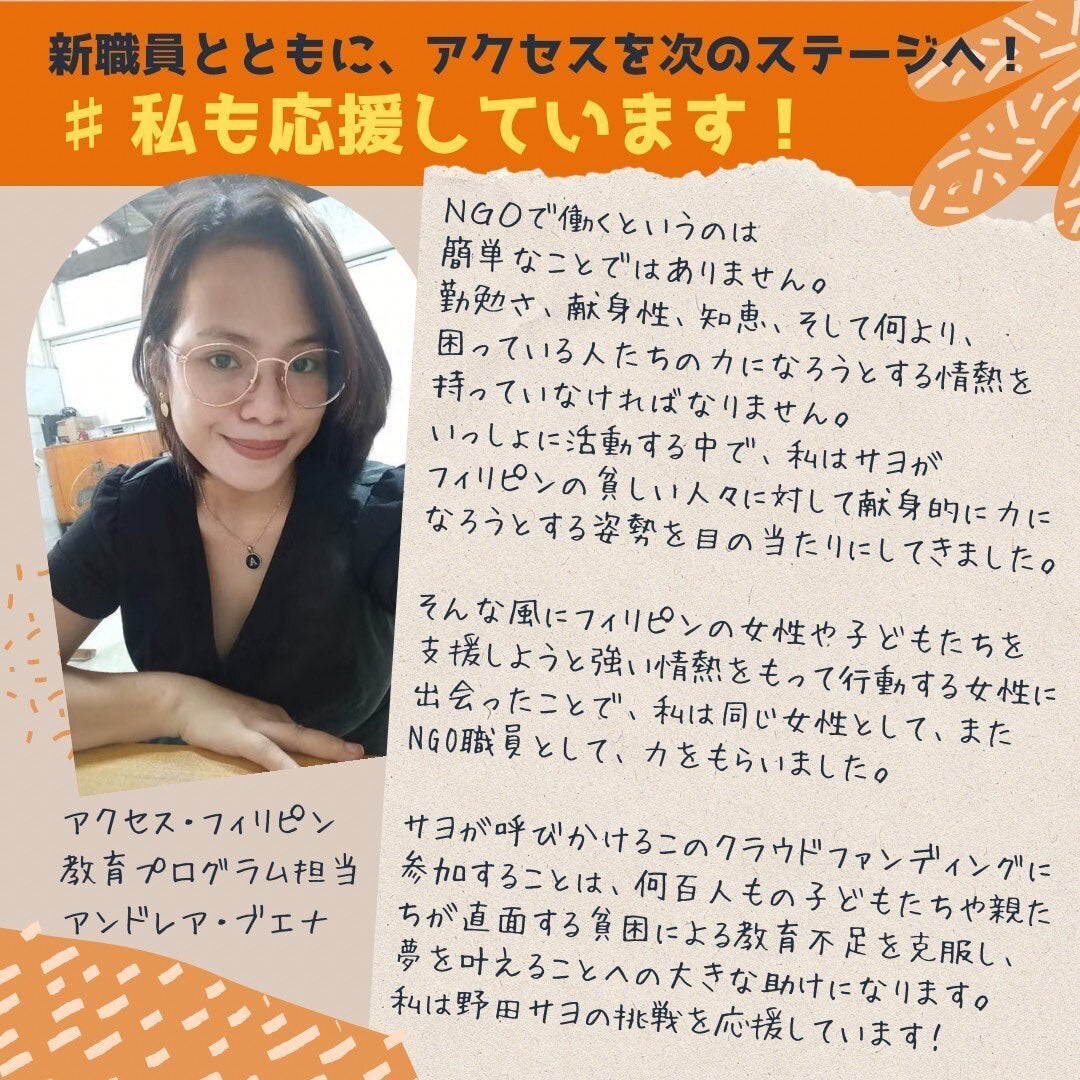 新職員とともに、アクセスを次のステージへ！
＃私も応援しています！
NGOで働くというのは
簡単なことではありません。
勤勉さ、献身性、知恵、そして何より、
困っている人たちの力になろうとする情熱を
持っていなければなりません。
いっしょに活動する中で、私はサヨが
フィリピンの貧しい人々に対して献身的に力に
なろうとする姿勢を目の当たりにしてきました。
そんな風にフィリピンの女性や子どもたちを
支援しようと強い情熱をもって行動する女性に
出会ったことで、私は同じ女性として、また
NGO職員として、力をもらいました。
サヨが呼びかけるこのクラウドファンディングに
参加することは、何百人もの子どもたちや親た
ちが直面する貧困による教育不足を克服し、
夢を叶えることへの大きな助けになります。
私は野田サヨの挑戦を応援しています！
アクセス・フィリピン
教育プログラム担当
アンドレア・ブエナ
A